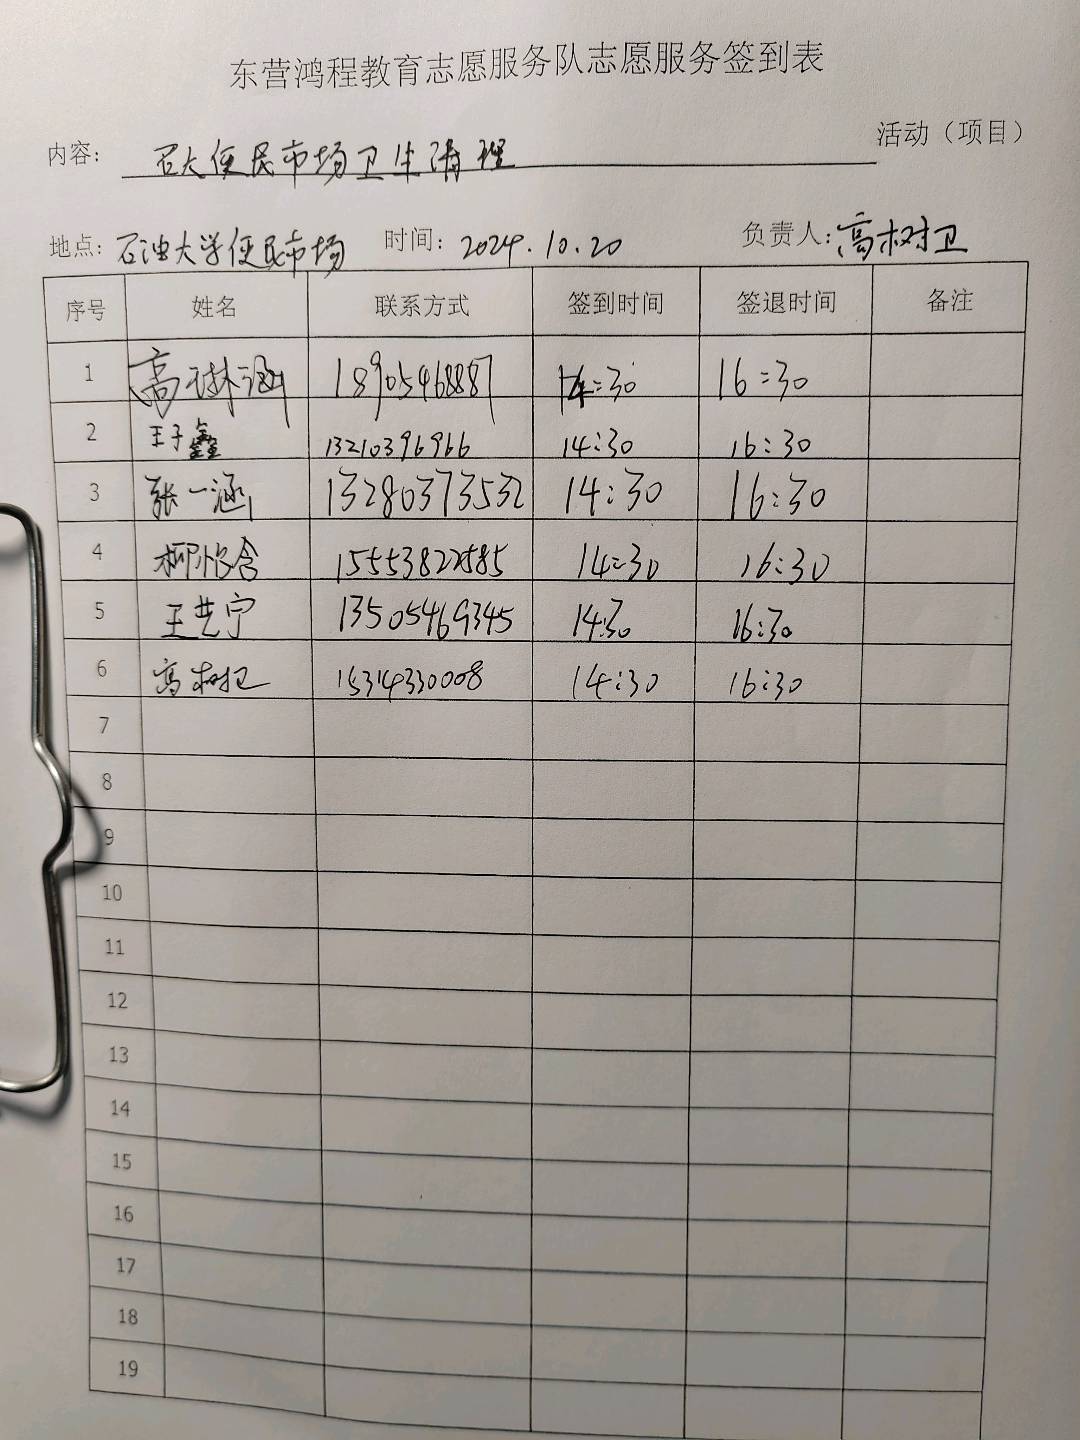 东营鸿程教育志愿服务队志愿服务签到表
内容: 石大便民市场卫生清理 活动（项目）
地点: 石油大学便民市场 时间: 2024.10.20 负责人: 高树卫
序号 姓名 联系方式 签到时间 签退时间 备注
1 高琳涵 18905468887 14:30 16:30
2 王子鑫 13210396966 14:30 16:30
3 张一涵 13280373532 14:30 16:30
4 柳怡含 15553822585 14:30 16:30
5 王艺宁 13505469345 14:30 16:30
6 高树卫 15314330008 14:30 16:30
7
8
9
10
11
12
13
14
15
16
17
18
19